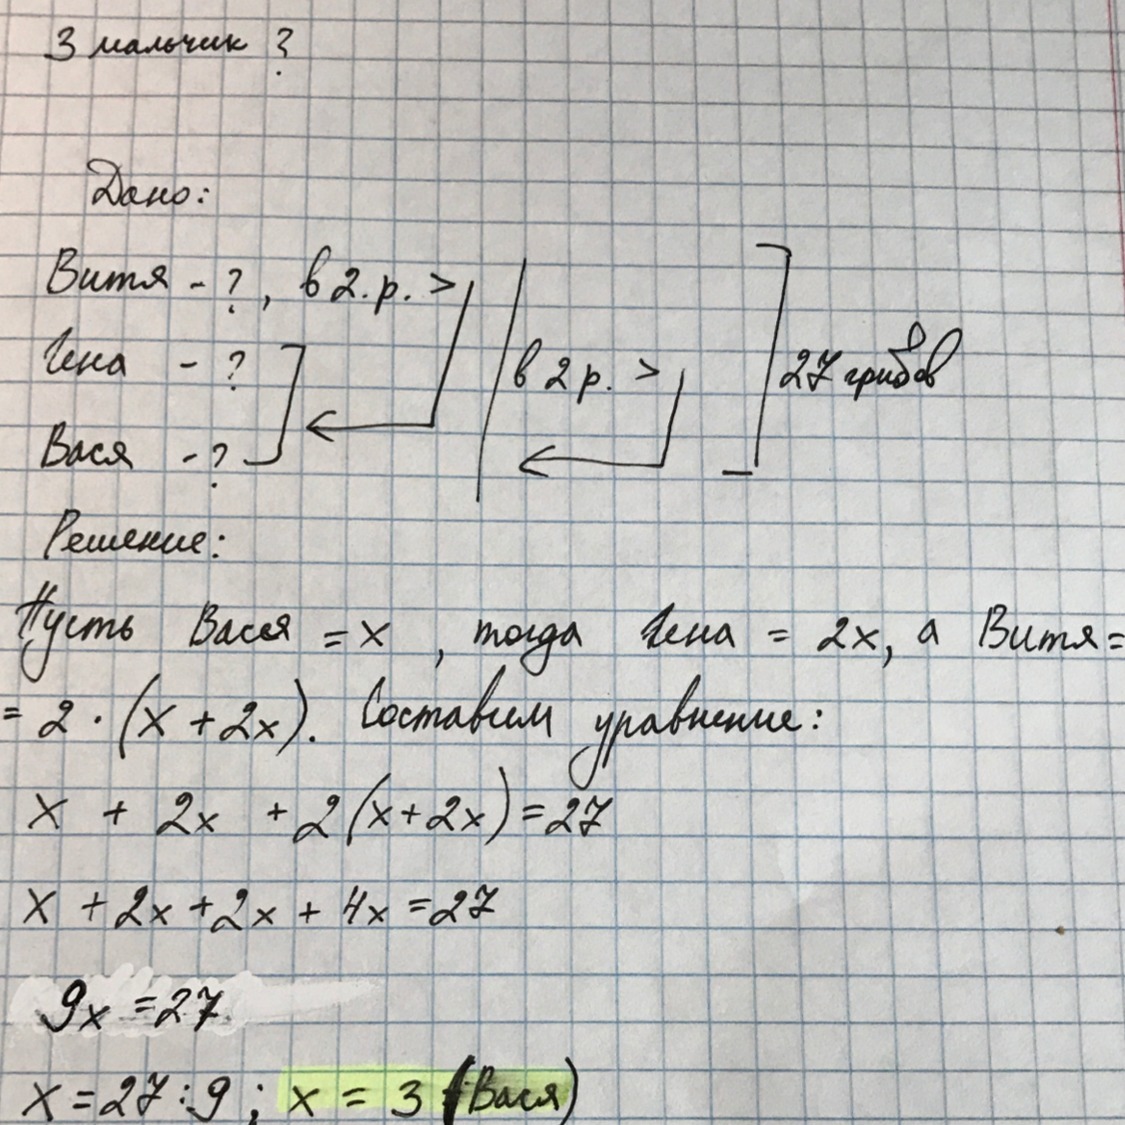 3 мальчик ?
Дано:
Витя - ?, в 2. р. >
Гена - ?
в 2 р. >
27 грибов
Вася - ?
Решение:
Пусть Вася = x, тогда Гена = 2x, а Витя =
= 2 · (x + 2x). Составим уравнение:
x + 2x + 2(x+2x) = 27
x + 2x + 2x + 4x = 27
9x = 27
x = 27 : 9 ; x = 3 (Вася)